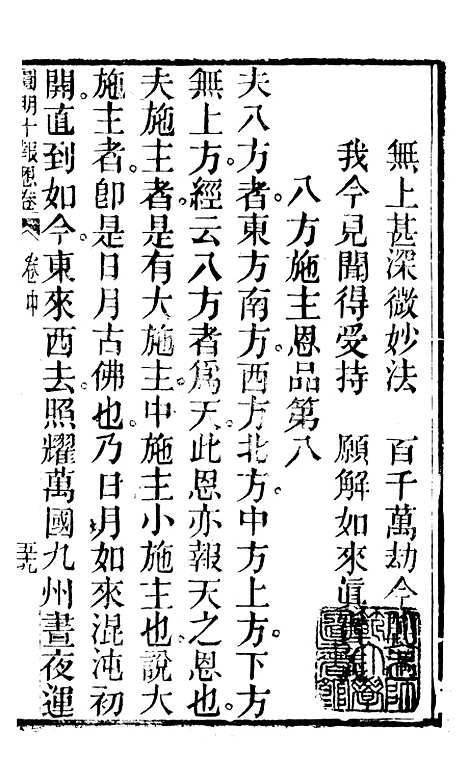 無上甚深微妙法　百千萬劫今
我今見聞得受持　願解如來眞
八方施主恩品第八
夫八方者東方南方西方北方。中方上方。下方
無上方。經云八方者。爲天此恩亦報天之恩也。
夫施主者。是有大施主。中施主小施主也。說大
施主者。卽是日月古佛也。乃日月如來混沌初
開。直到如今。東來西去。照耀萬國九州。晝夜運
圓明十報恩卷　卷中　五九